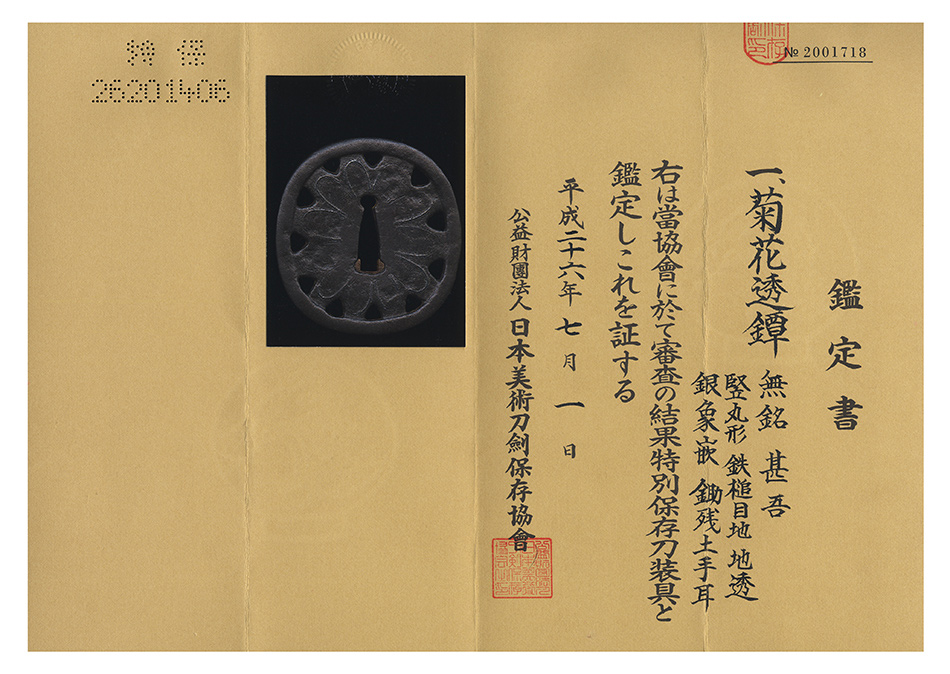 № 2001718
鑑定書
一、菊花透鐔
無銘 甚吾
竪丸形 鉄槌目地 地透
銀象嵌 鋤残土手耳
右は當協會に於て審査の結果特別保存刀装具と
鑑定しこれを証する
平成二十六年七月一日
公益財團法人 日本美術刀劍保存協會
特保
26201406